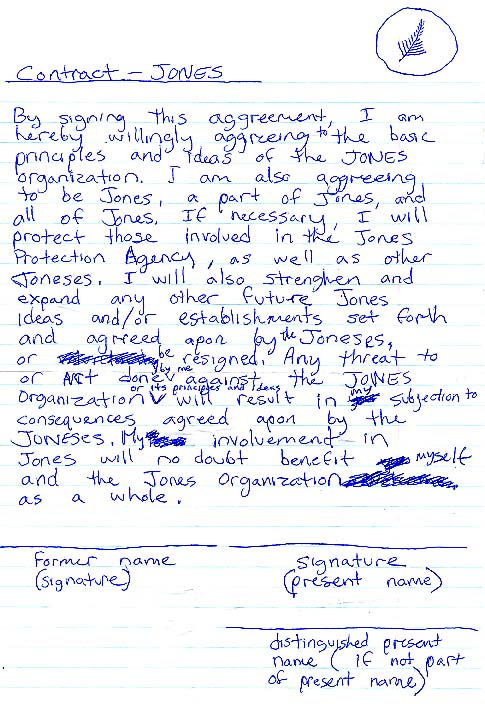 Contract – JONES
By signing this aggreement, I am
hereby willingly aggreeing to the basic
principles and ideas of the JONES
organization. I am also aggreeing
to be Jones, a part of Jones, and
all of Jones. If necessary, I will
protect those involved in the Jones
Protection Agency, as well as other
Joneses. I will also strenghen and
expand any other future Jones
Ideas and/or establishments set forth
and agreed apon by the Joneses,
or be resigned. Any threat to
or Act done by me against the JONES
Organization or its principles and ideas will result in my subjection to
consequences agreed apon by the
JONESES. My involvement in
Jones will no doubt benefit myself
and the Jones Organization
as a whole.
Former name
(signature)
signature
(present name)
distinguished present
name (if not part
of present name)